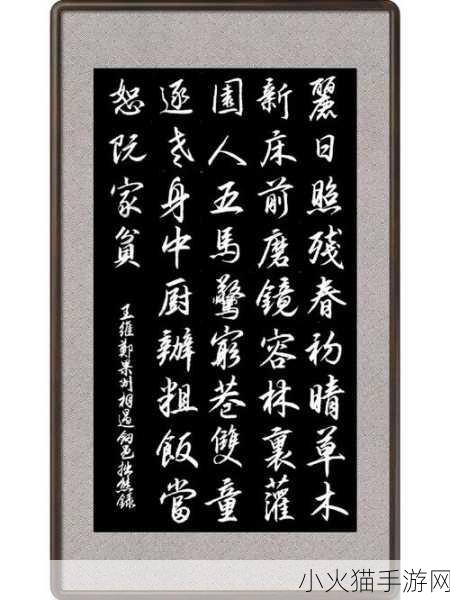 麗日照残春初晴草木
新床前磨鏡容林裏灌
園人五馬驚窮巷雙童
逐老身中厨辦粗飯當
恕阮家貧
王維鄭果州相過
小火猫手游网